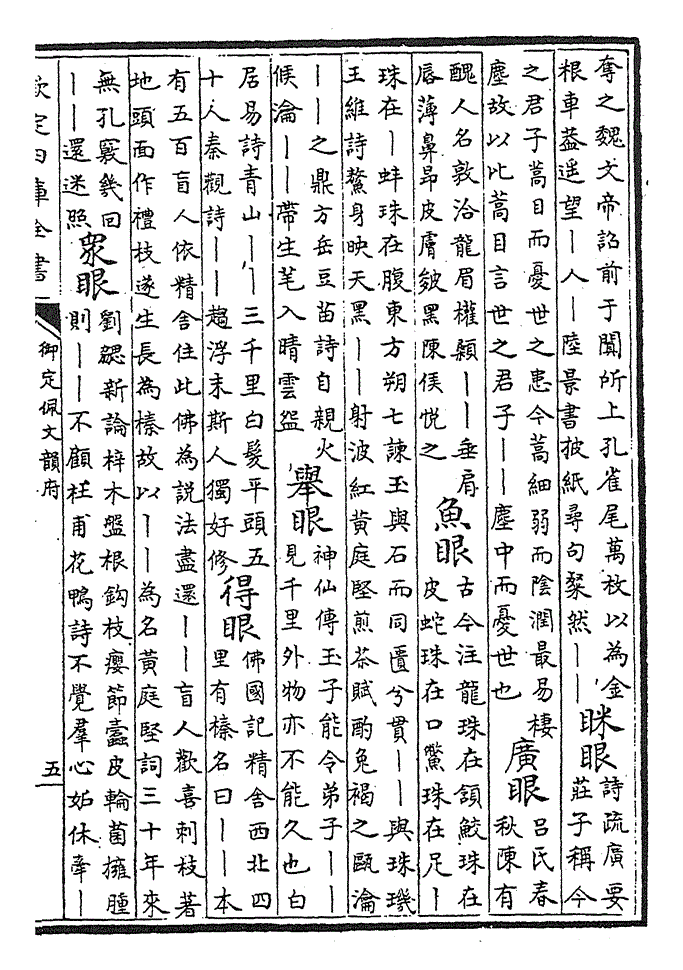 奪之魏文帝詔前于闐所上孔雀尾萬枚以為金
根車葢遥望丨人丨陸景書披紙尋句粲然丨丨
眯眼
詩疏廣要
莊子稱今
之君子蒿目而憂世之患今蒿細弱而陰潤最易棲
塵故以比蒿目言世之君子丨丨塵中而憂世也
廣眼
呂氏春
秋陳有
醜人名敦洽龍眉權顙丨丨垂肩
唇薄鼻昂皮膚皴黑陳侯悅之
魚眼
古今注龍珠在頷鮫珠在
皮蛇珠在口鱉珠在足丨
珠在丨蚌珠在腹東方朔七諫玉與石而同匱兮貫丨丨與珠璣
王維詩鰲身映天黑丨丨射波紅黄庭堅煎茶賦酌兔褐之甌瀹
丨丨之鼎方岳豆苗詩自親火
候瀹丨丨帶生芼入晴雲盌
舉眼
神仙傳玉子能令弟子丨丨
見千里外物亦不能久也白
居易詩青山丨丨三千里白髮平頭五
十人秦觀詩丨丨趨浮末斯人獨好修
得眼
佛國記精舍西北四
里有榛名曰丨丨本
有五百盲人依精舍住此佛為説法盡還丨丨盲人歡喜刺枝著
地頭面作禮枝遂生長為榛故以丨丨為名黄庭堅詞三十年來
無孔竅幾回
丨丨還迷照
衆眼
劉勰新論梓木盤根鈎枝癭節蠹皮輪菌擁腫
則丨丨不顧杜甫花鴨詩不覺羣心妬休牽丨
欽定四庫全書
御定佩文韻府
五